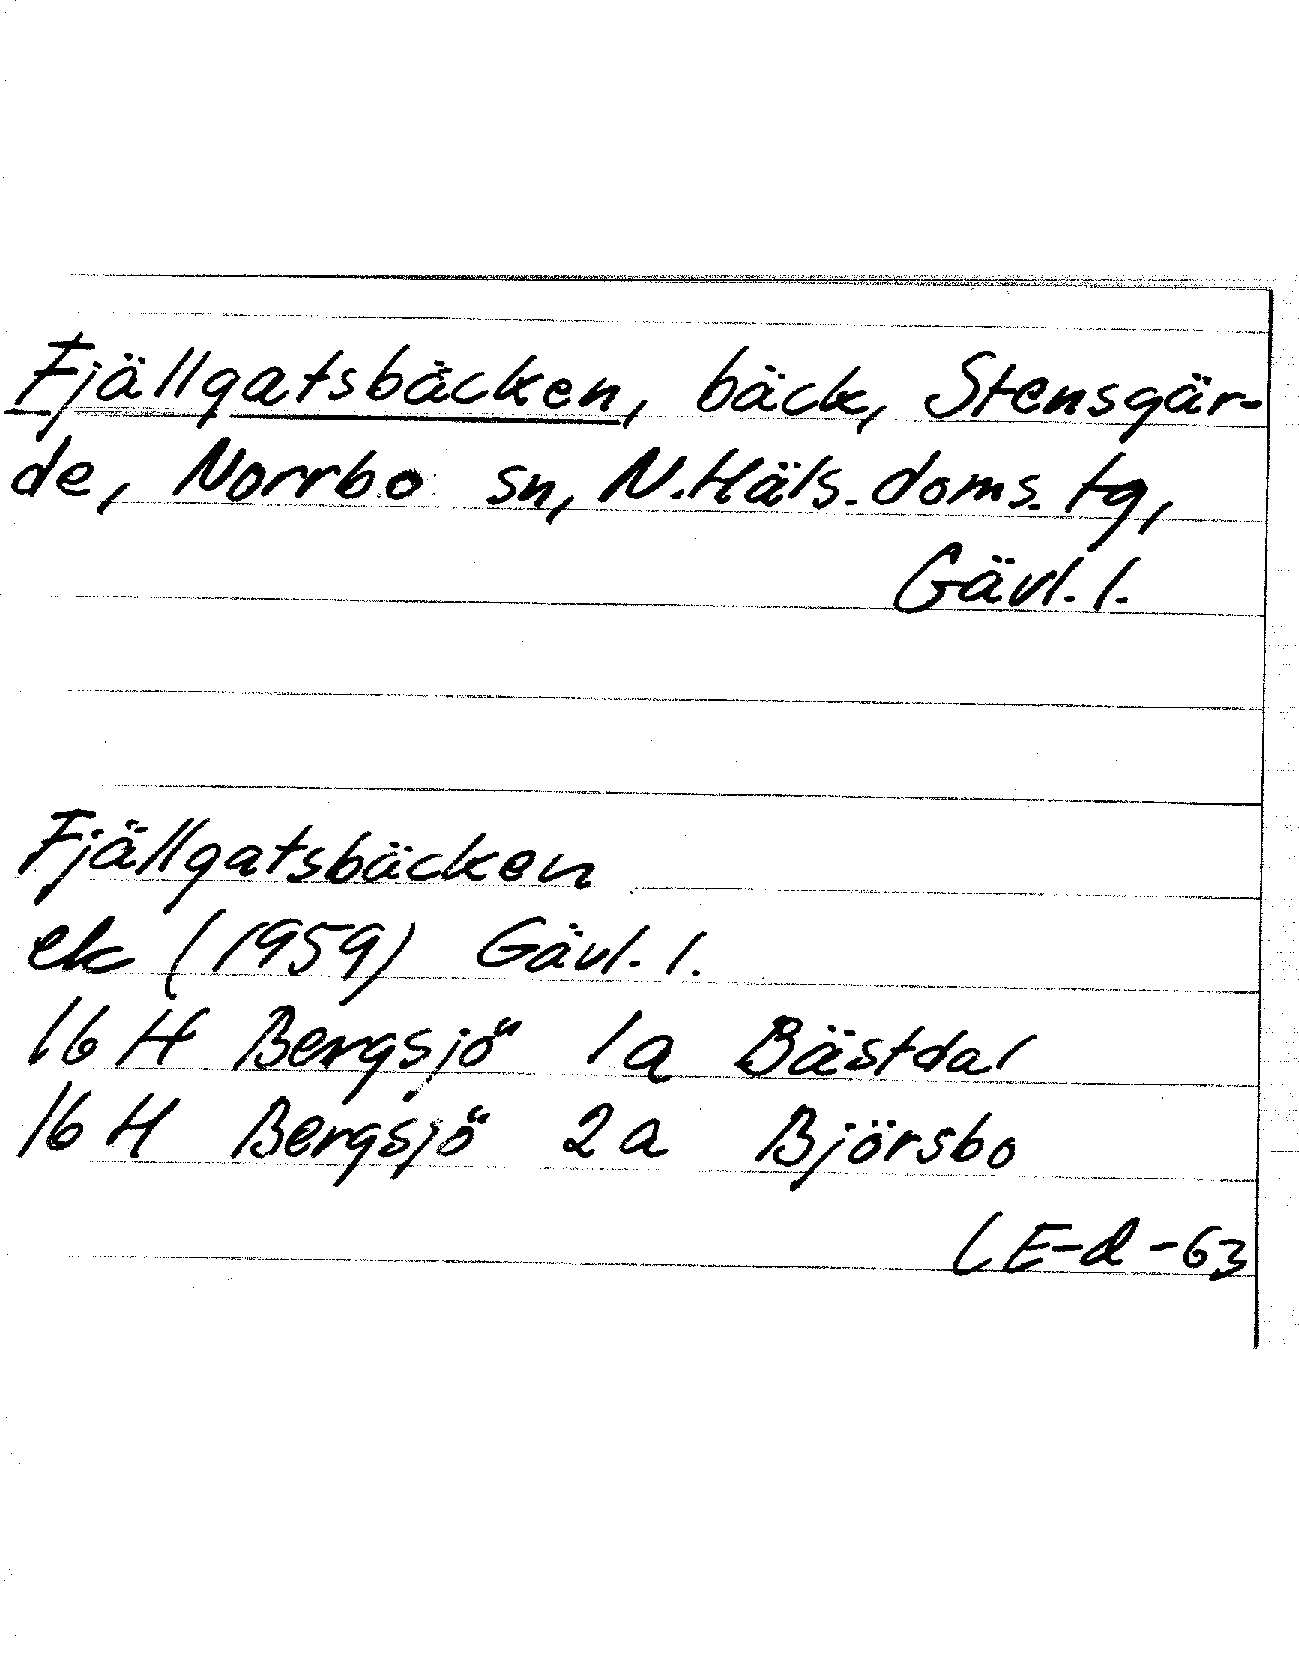 Fjällgatsbäcken, bäck, Stensgär-
de, Norrbo sn, N.Häls.doms.tg,
Gävl.l.
Fjällgatsbäcken
ek (1959) Gävl.l.
16 H Bergsjö 1a Bästdal
16 H Bergsjö 2a Björsbo
LE-d-63